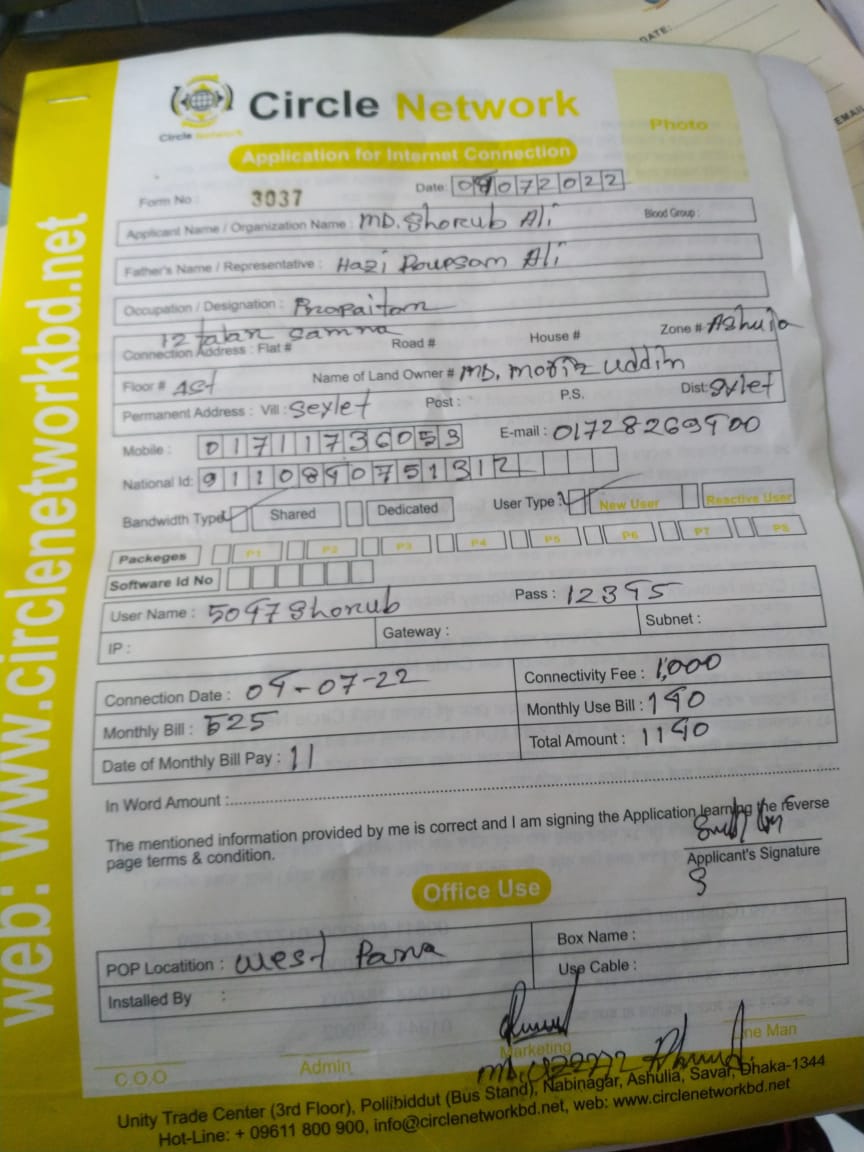 DATE:
EMAIL
Circle Network
Circle Network
Photo
Application for Internet Connection
Form No : 3037 Date: 09072022
Applicant Name / Organization Name : MD. Shorub Ali Blood Group :
Father's Name / Representative : Hazi Ali
Occupation / Designation :
12 Samna
Connection Address : Flat # Road # House # Zone # Ashulia
Floor # Name of Land Owner # MD. uddin
Permanent Address : Vill : Seylet Post : P.S. Dist: Sylet
Mobile : 01711736053 E-mail : 01728269900
National Id:
Bandwidth Type Shared Dedicated User Type : New User Reactive User
Packeges P1 P2 P3 P4 P5 P6 P7 P8
Software Id No
User Name : 5097Shorub Pass : 12395
IP : Gateway : Subnet :
Connection Date : 09-07-22 Connectivity Fee : 1,000
Monthly Bill : 525 Monthly Use Bill : 190
Date of Monthly Bill Pay : 11 Total Amount : 1190
In Word Amount :
The mentioned information provided by me is correct and I am signing the Application learning the reverse
page terms & condition.
Applicant's Signature
Office Use
POP Locatition : West Parra Box Name :
Installed By : Use Cable :
C.O.O Admin Marketing Line Man
Unity Trade Center (3rd Floor), Pollibiddut (Bus Stand), Nabinagar, Ashulia, Savar, Dhaka-1344
Hot-Line: + 09611 800 900, info@circlenetworkbd.net, web: www.circlenetworkbd.net
web: www.circlenetworkbd.net